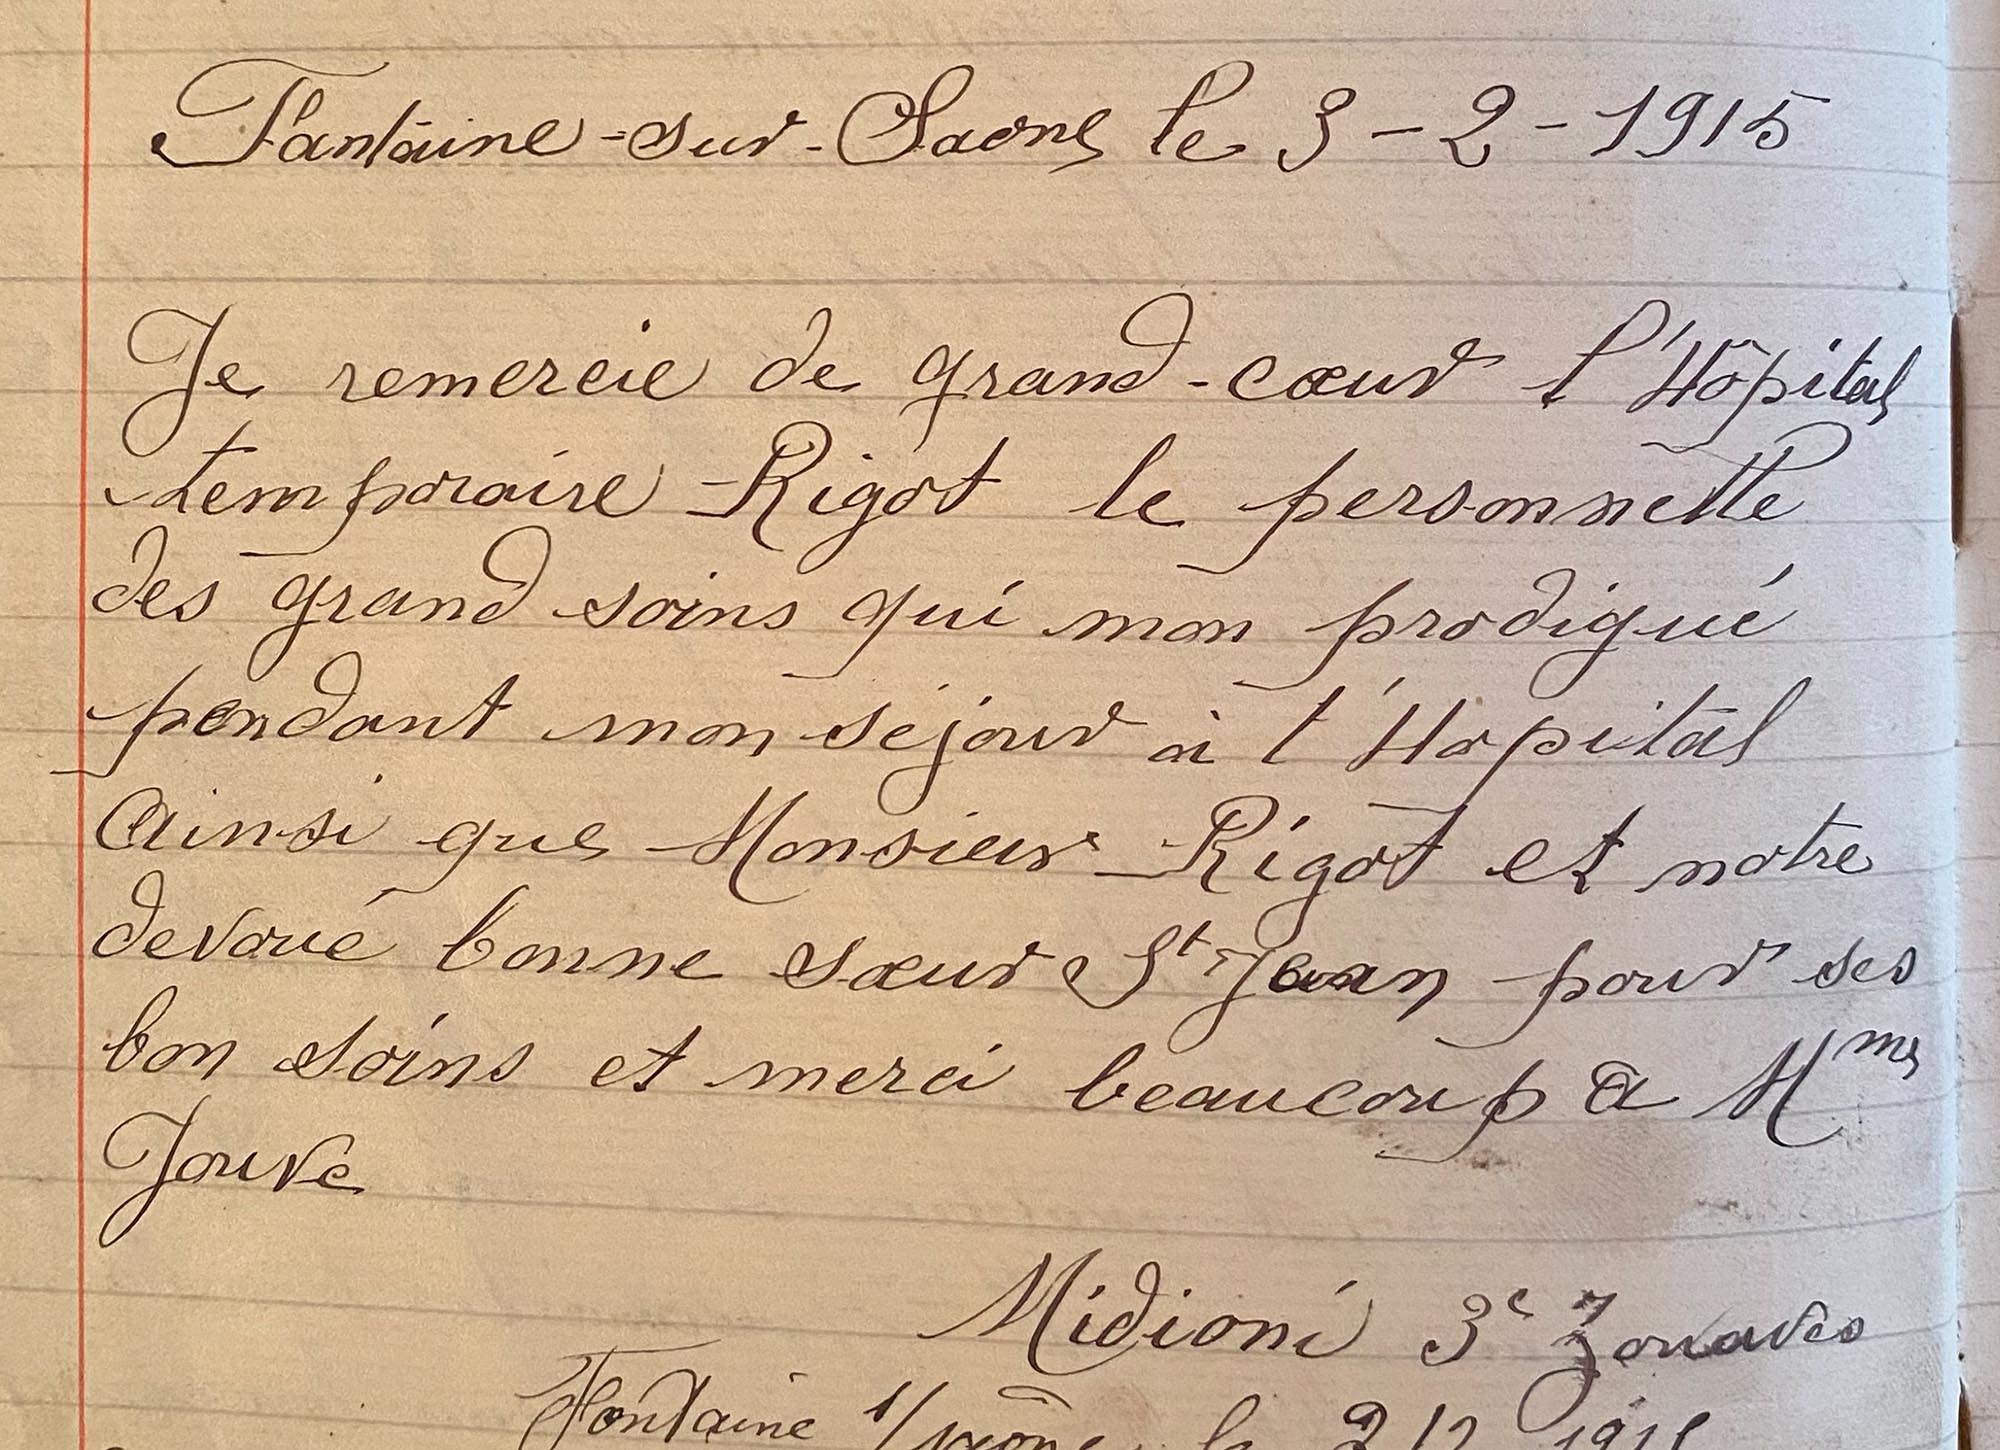 Fantaine-sur-Saone le 3-2-1915
Je remercie de grand-cœur l'Hôpital
temporaire Rigot le personnelle
des grand soins qui mon prodigué
pendant mon séjour à l'Hopital
Ainsi que Monsieur Rigot et notre
devoué bonne sœur St Jean pour ses
bon soins et merci beaucoup a Mme
Jouve
Midioni 3e Zouaves
Fontaine s/Saône le 1915